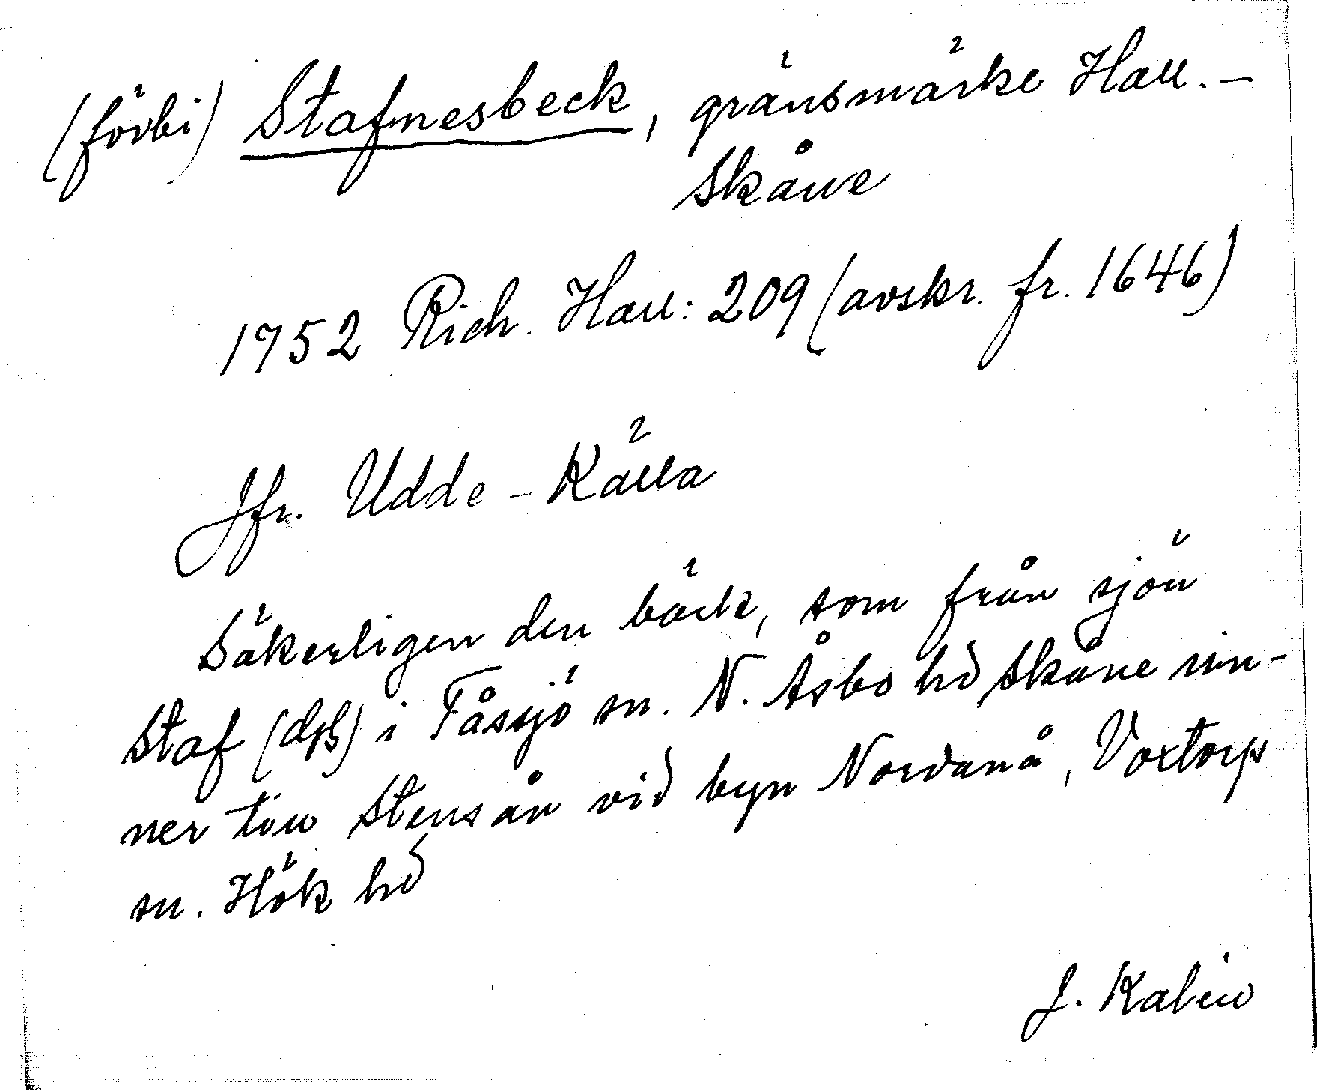 (förbi) Stafnesbeck, gränsmärke Hall. –
Skåne
1752 Rich. Hall: 209 (avskr. fr. 1646)
Jfr. Udde-Källa
Säkerligen den bäck, som från sjön
Staf (dß) i Fåssjö sn. N. Åsbo hd Skåne rin-
ner till Stensån vid byn Nordanå, Voxtorps
sn. Hök hd
J. Kalén